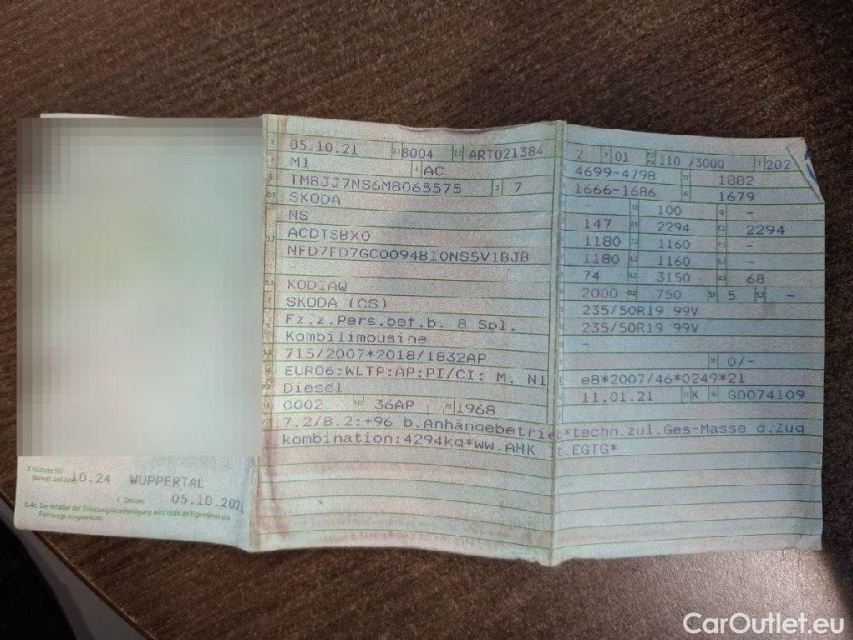 05.10.21 8004 ART021384
M1 AC
TMBJJ7NS6M8065575 7
SKODA
NS
ACDTSBX0
NFD7FD7GC0094810NS5V1BJB
KODIAQ
SKODA (CS)
Fz.z.Pers.bef.b. 8 Spl.
Kombilimousine
715/2007*2018/1832AP
EURO6;WLTP;AP;PI/CI; M, N1
Diesel
0002 36AP 1968
7.2/8.2:+96 b.Anhängebetrieb*techn.zul.Ges-Masse d.Zug
kombination:4294kg*ww.AHK lt.EGTG*
2 01 110 /3000 202
4699-4798 1882
1666-1686 1679
- 100 -
147 2294 2294
1180 1160 -
1180 1160 -
74 3150 68
2000 750 5 -
235/50R19 99V
235/50R19 99V
-
0/-
e8*2007/46*0249*21
11.01.21 X GD074109
10.24 WUPPERTAL
05.10.202
CarOutlet.eu